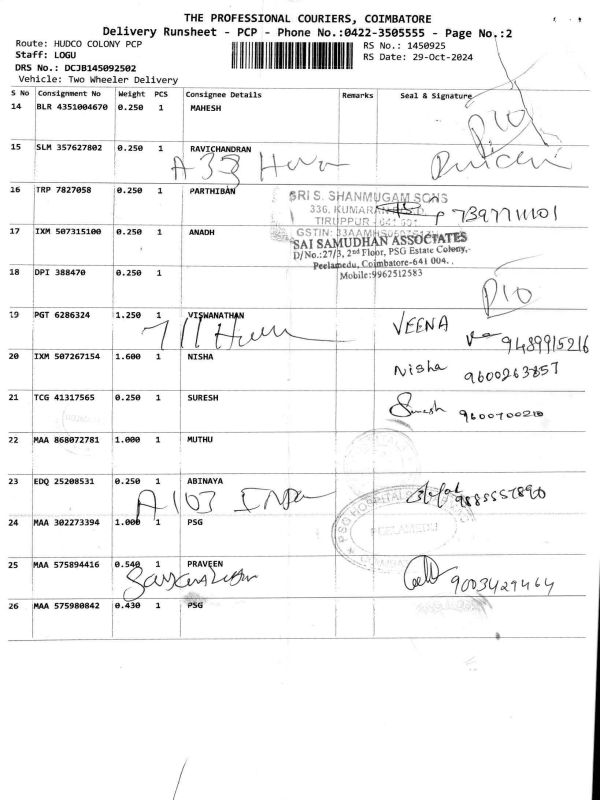 THE PROFESSIONAL COURIERS, COIMBATORE
Delivery Runsheet - PCP - Phone No.:0422-3505555 - Page No.:2
Route: HUDCO COLONY PCP
RS No.: 1450925
Staff: LOGU
RS Date: 29-Oct-2024
DRS No.: DCJB145092502
Vehicle: Two Wheeler Delivery
S No Consignment No Weight PCS Consignee Details Remarks Seal & Signature
14 BLR 4351004670 0.250 1 MAHESH
15 SLM 357627802 0.250 1 RAVICHANDRAN
16 TRP 7827058 0.250 1 PARTHIBAN
SRI S. SHANMUGAM SONS
336, KUMARAN
7397711101
TIRUPPUR - 641 601.
17 IXM 507315100 0.250 1 ANADH
GSTIN:
SAI SAMUDHAN ASSOCIATES
D/No.:27/3, 2nd Floor, PSG Estate Colony,
Peelamedu, Coimbatore-641 004.
18 DPI 388470 0.250 1
Mobile:9962512583
19 PGT 6286324 1.250 1 VISWANATHAN
VEENA
9489915216
20 IXM 507267154 1.600 1 NISHA
Nisha 9600263857
21 TCG 41317565 0.250 1 SURESH
Suresh 9600700210
22 MAA 868072781 1.000 1 MUTHU
23 EDQ 25208531 0.250 1 ABINAYA
A 103
9885557890
24 MAA 302273394 1.000 1 PSG
PSG HOSPITALS
PEELAMEDU
25 MAA 575894416 0.540 1 PRAVEEN
9003429464
26 MAA 575980842 0.430 1 PSG